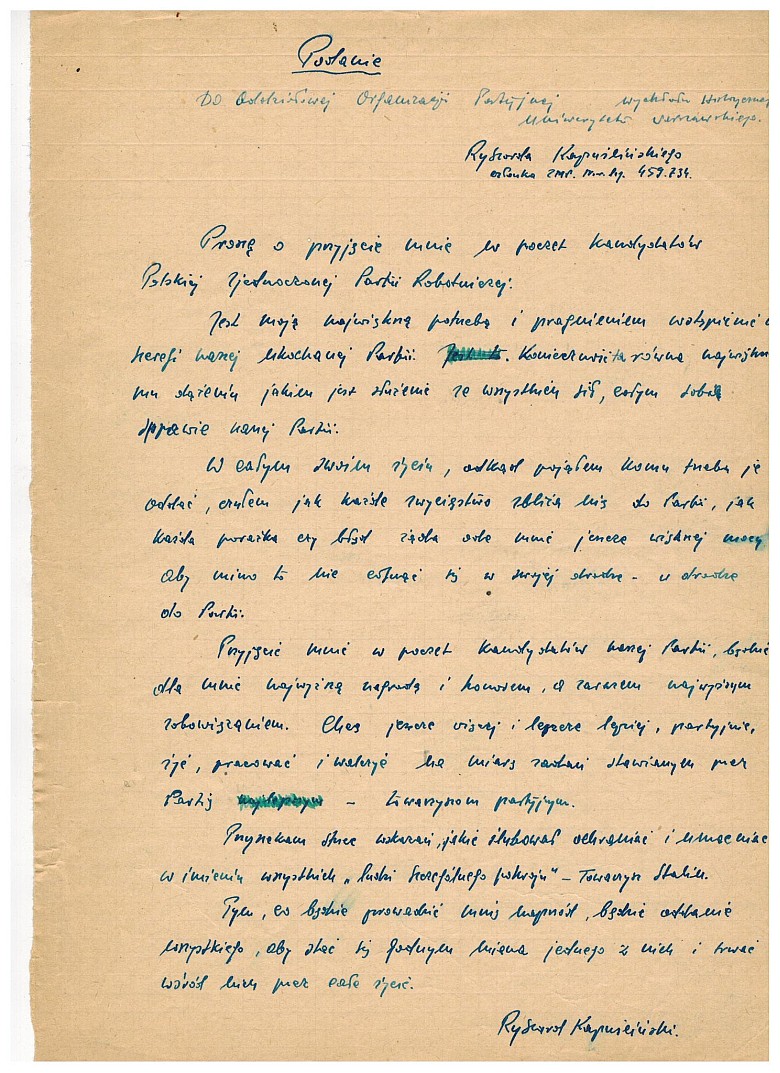 Podanie
Do Oddziałowej Organizacji Partyjnej Wydziału Historyczneg
Uniwersytetu Warszawskiego.
Ryszarda Kapuścińskiego
członka ZMP. nr. leg. 459.734.
Proszę o przyjęcie mnie w poczet kandydatów
Polskiej Zjednoczonej Partii Robotniczej.
Jest moją największą potrzebą i pragnieniem wstąpienie w
szeregi naszej ukochanej Partii. Koniecznością równą najwięks
mu dążeniu jakim jest służenie ze wszystkich sił, całym sobą
sprawie naszej Partii.
W całym swoim życiu, odkąd pojąłem komu trzeba je
oddać, czułem jak każde zwycięstwo zbliża mnie do Partii, jak
każda porażka czy błąd żąda ode mnie jeszcze większej mocy
aby mimo to nie cofnąć się w swojej drodze – w drodze
do Partii.
Przyjęcie mnie w poczet kandydatów naszej Partii, będzie
dla mnie najwyższą nagrodą i honorem, a zarazem najwyższym
zobowiązaniem. Chcę jeszcze więcej i lepiej, partyjnie,
żyć, pracować i walczyć na miarę zadań stawianym przez
Partię – towarzyszom partyjnym.
Przyrzekam strzec wskazań, jakie ślubował ochraniać i umacniać
w imieniu wszystkich „ludzi szczególnego pokroju" – Towarzysz Stalin.
Tym, co będzie prowadzić mnie naprzód, będzie oddanie
wszystkiego, aby stać się godnym miana jednego z nich i trwać
wśród nich przez całe życie.
Ryszard Kapuściński.